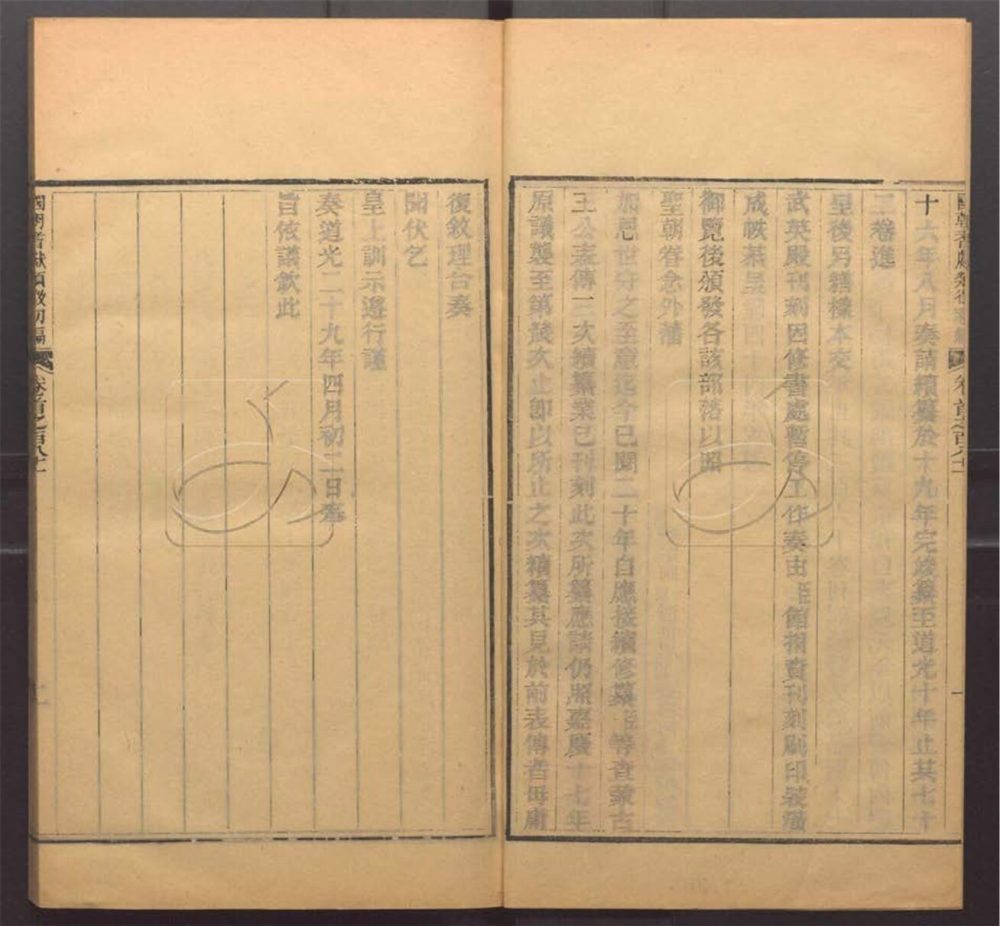 十六年八月奏請續纂於十九年完竣纂至道光十年止其七十
二卷進
呈後另繕樣本交
武英殿刊刻因修書處暫停工作奏由臣館捐資刊刻刷印裝潢
成帙恭呈
御覽後頒發各該部落以昭
聖朝眷念外藩
加恩世守之至意迄今已閱二十年自應接續修纂臣等查蒙古
王公表傳二次續纂業已刊刻此次所纂應請仍照嘉慶十七年
原議襲至第幾次止即以所止之次續纂其見於前表傳者毋庸
國朝耆獻類徵初編
卷首之百八十
復敘理合奏
聞伏乞
皇上訓示遵行謹
奏道光二十九年四月初二日奉
旨依議欽此